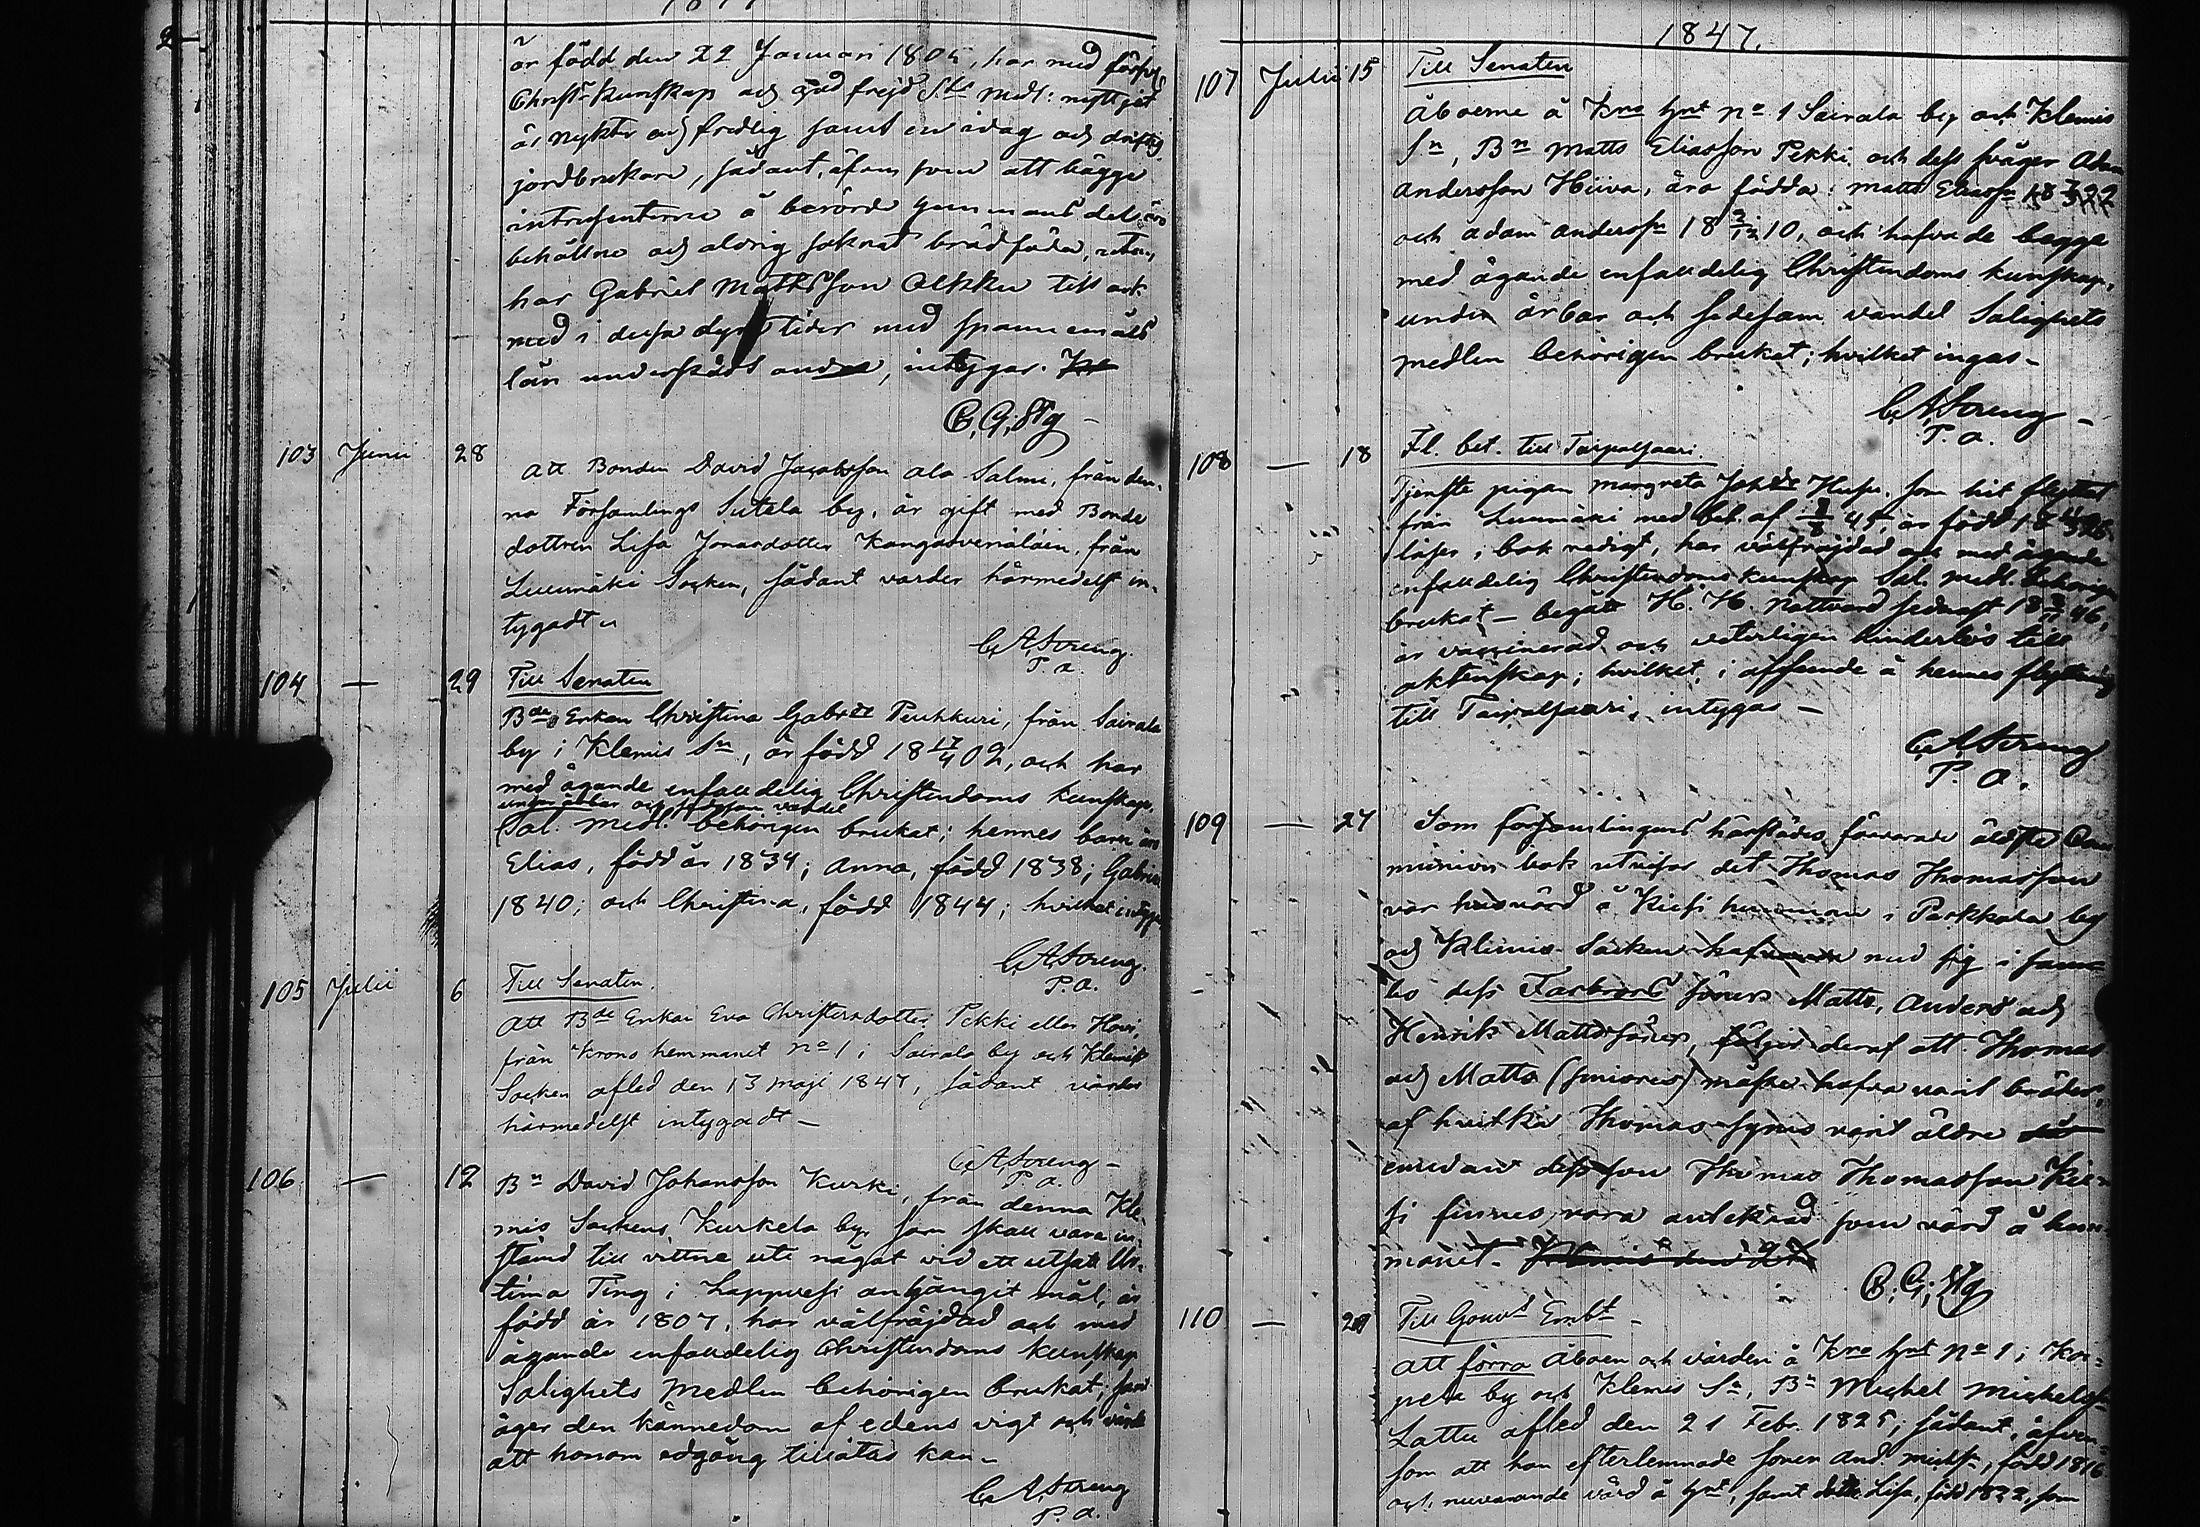 är född den 22 Januari 1805, har med förfar.
Christ. Kunskap och god frejd S:ts Medl: nyttjat
är nykter och fredlig samt en idog och driftig
jordbrukare, sådant, äfven som att bägge
intressenterne å berörde hemmansdel äro
behållne och aldrig saknat brödföda, utan
har Gabriel Mattsson Olkku till och
med i dessa dyra tider med spannemåls
lån understödt andra, intygar.
C. G. Stg
103 Junii 28 Att Bonden David Jacobsson Ala Salmi, från den-
na Församlings Sutela by, är gift med Bonde
dottren Lisa Jonasdotter Kangasvenäläin, från
Luumäki Socken, sådant varder härmedelst in-
tygadt.
C. A. Streng.
P. a.
104 — 29 Till Senaten
Bde Enkan Christina Gabrdr Peuhkuri, från Sairala
by i Klemis Sn, är född 18 17/4 02, och har
med ägande enfaldelig Christendoms kunskap,
under ärbar och sedesam vandel
Sal. Medl. behörigen brukat; hennes barn äro
Elias, född år 1834; Anna, född 1838; Gabriel
1840; och Christina, född 1844; hvilket intygas
C. A. Streng.
P. a.
105 Julii 6 Till Senaten.
Att Bde Enkan Eva Christersdotter Pekki eller Hovi,
från Krono hemmanet No 1 i Sairala by och Klemis
Socken afled den 13 Maji 1847, sådant varder
härmedelst intygadt —
C. A. Streng —
P. a.
106 — 12 Bn David Johansson Kurki, från denna Kle-
mis Sockens Kurkela by, som skall vara in-
stämd till vittne uti något vid ett utsatt Ur-
tima Ting i Lappvesi anhängit mål, är
född år 1807, har välfräjdad och med
ägande enfaldelig Christendoms kunskap
Salighets Medlen behörigen brukat; samt
äger den kännedom af edens vigt och värde
att honom edgång tillåtas kan.
C. A. Streng
P. a.
1847.
107 Julii 15 Till Senaten
Åboerne å Kro hmt No 1 Sairala by och Klemis
Sn, Bn Matts Eliasson Pekki och dess svåger Adam
Andersson Hiiva, äro födda: Matts Eliassn 18 22
och Adam Anderssn 18 2/12 10, och hafva de begge
med ägande enfaldelig Christendoms kunskap,
under ärbar och sedesam vandel Salighets
medlen behörigen brukat; hvilket intygas —
C. A. Streng —
P. a.
108 — 18 Fl. bet. till Taipalsaari.
Tjenste pigan Margreta Johdr Husu, som hit flyttat
från Luumäki med bet. af 45, är född 18 26
läser i bok redigt, har välfräjdad och med ägande
enfaldelig Christendoms kunskap Sal. medl. behörigen
brukat — begått H. H. Nattvard sednast 18 46,
är vaccinerad och veterligen hinderlös till
äktenskap; hvilket, i afseende å hennes flyttning
till Taipalsaari, intygas —
C. A. Streng
P. a.
109 — 27 Som församlingens härstädes förvarade äldsta Com
munion bok utvisar det Thomas Thomasson
var husvärd å Kiesi hemman i Parkkola by
och Klemis Socken hafvande med sig i
bo dess Farbrors söner Matts, Anders och
Henrik Mattssöner, följer deraf att Thomas
och Matts (seniores) måste hafva varit bröder,
af hvilka Thomas synes varit äldre
emedan dess son Thomas Thomasson Kie
si finnes vara antecknad som värd å hem-
manet. Klemis den 27
C. G. Stg
110 — 29 Till Gouvts Embt —
Att förra Åboen och värden å Kro hmt No 1 i Kor-
pela by och Klemis Sn, Bn Michel Michelss
Lattu afled den 21 Febr. 1825; sådant, äfven-
som att han efterlemnade sonen And Michss, född 1816
och nuvarande värd å hmt, samt dottr Lisa, född 1822, som